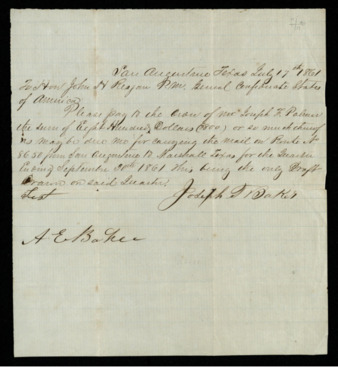 San Augustine Texas July 17th 1861
To Hon John H Reagan P.M. General Confederate States
of America
Please pay to the order of Mr Joseph F.
the sum of Eight Hundred Dollars (800) or so much thereof
as may be due me for carrying the mail on Route No
8650 from San Augustine to Marshall Texas for the Quarter
Ending September 30th 1861 this being the only Draft
Drawn on said Quarter.
Test Joseph T Baker
A E Baker